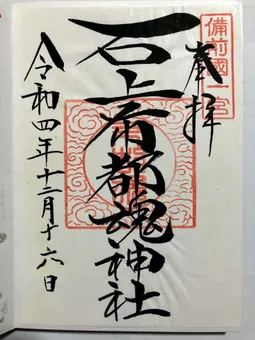 備前國一宮
奉拝
石上布都魂神社
令和四年十二月十六日